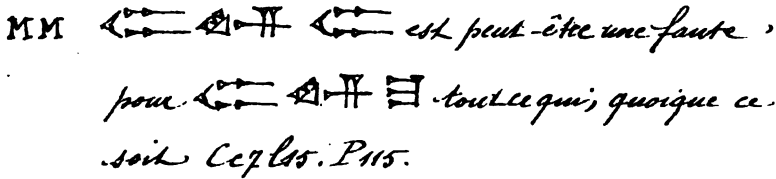 MM 𒈪𒅎 𒈪 est peut-être une faute,
pour 𒈪 𒅎 𒈠 tout ce qui, quoique ce
soit Cc7 l15. P115.